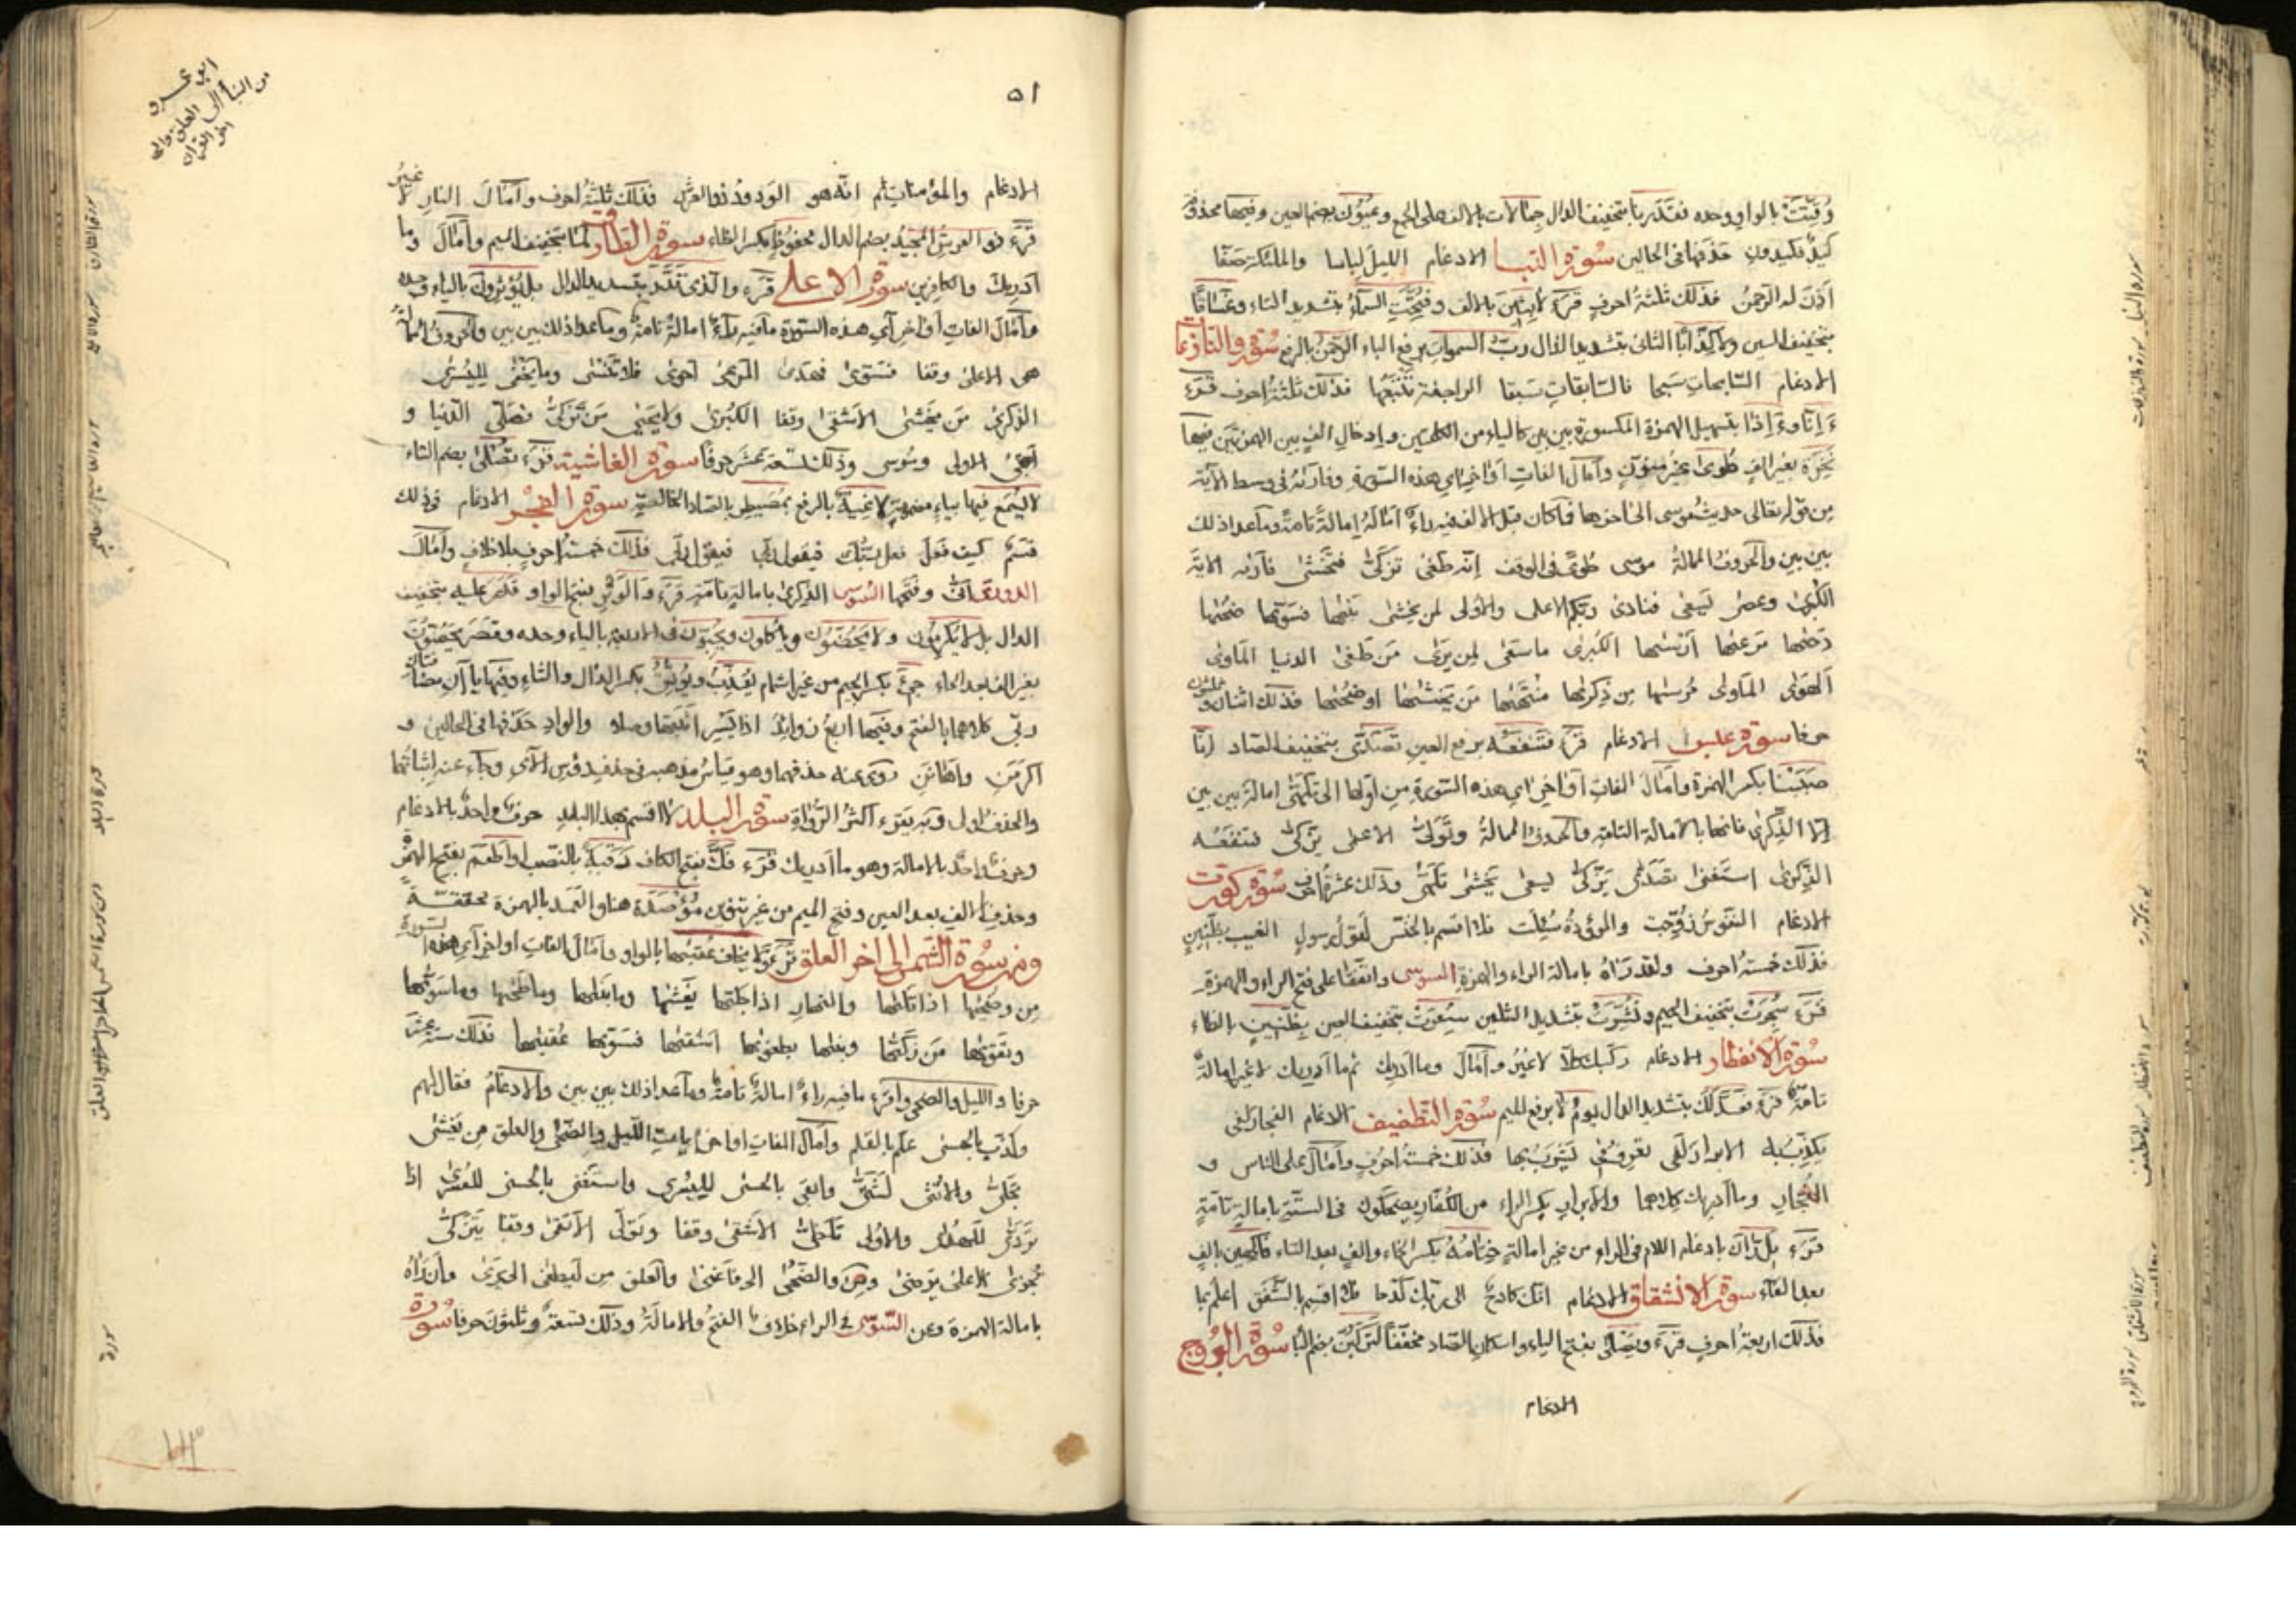 وُقِّتَتْ بالواو وحده فقدرنا بتخفيف الدال جمالات بالالف على الجمع وعُيُون بضم العين وفيها محذوفة
كيد فكيدون حذفها فى الحالين سورة النبا الادغام الليل لباسا والملئكة صفّا
أذن له الرحمن فذلك ثلثةُ احرف قرَء لابثين بالالف وفُتّحت السماءُ بتشديد التاء وغساقًا
بتخفيف السين ولا كِذّابا الثانى بتشديد الذال ربُّ السموات برفع الباء الرحمنُ بالرفع سورة والنازعات
الادغام السابحات سبحا فالسابقات سبقا الراجفة تتبعها فذلك ثلثة احرف قرَء
ءَإنّا وءَإذا بتسهيل الهمزة المكسورة بين بين كالياء من الكلمتين وإدخال الف بين الهمزتين فيهما
نَخِرَة بغير الف طُوى غير منون وأمال الفات أواخر اى هذه السورة
من قوله تعالى حديث موسى الى اخرها فما كان قبل الالف فيه راءٌ أمالَهُ إمالةً تامةً وما عدا ذلك
بين بين والحروف الممالة موسى طُوىً فى الوقف إنه طغى تزكّى فتخشى فأريه الاية
الكبرى وعصى يسعى فنادى ربكم الاعلى والأولى لمن يخشى بنيها فسويها ضحيها
دحيها مرعيها أرسيها الكبرى ما سعى لمن يرى من طغى الدنيا المأوى
الهوى المأوى مُرسيها من ذكريها منتهيها من يخشيها او ضحيها فذلك اثنان وثلثون
حرفا سورة عبس الادغام قرَء فتنفعُه برفع العين تصدّى بتخفيف الصاد إنّا
صببنا بكسر الهمزة وأمال الفات أواخر اى هذه السورة من اولها الى تلهّى امالة بين بين
إلا الذِكرى فانها بالامالة التامة والحروف الممالة وتولى الاعمى يزكى فتنفعه
الذكرى استغنى تصدى يزكى يسعى يخشى تلهى وذلك عشرةُ احرف سورة كورت
الادغام النفوس زُوّجت والموءودةُ سُئِلت فلا اقسم بالخنس لقول رسول الغيب بظنين
فذلك خمسةُ احرف ولقد رَآهُ بامالة الراء والهمزة السوسى واتفقا على فتح الراء والهمزة
قرَء سُجِرَتْ بتخفيف الجيم ونُشِّرَتْ بتشديد الشين سُعِرَتْ بتخفيف العين بظنين بالظاء
سورة الانفطار الادغام ركبك كلا لا غيرُ وأمال وما أدريك ثم ما أدريك لا غير امالةً
تامةً قرَء فعدّلك بتشديد الدال يومُ لا برفع الميم سورة التطفيف الادغام الفجار لفى
يكذب به الابرار لفى تعرف فى يشرب بها فذلك خمسةُ احرف وأمال على الناس و
الفجار وما أدريك كلاهما والأبرار بكسر الراء من الكُفار يضحكون فى الستة بامالة تامةٍ
قرَء بل رّان بادغام اللام فى الراء من غير امالةٍ خِتامُهُ بكسر الخاء والف بعد التاء فاكهين بالفٍ
بعد الفاء سورة الانشقاق الادغام انك كادح الى ربك كدحا فلا اقسم بالشفق اعلم بما
فذلك اربعةُ احرفٍ قرَء ويَصلى بفتح الياء واسكان الصاد مخففا لتركبُنّ بضم البا سورة البروج
الادغام
٥١
ابو عمرو
من النبأ الى العلق والى
اخر القرآن
الادغام والمؤمنات ثم انه هو الودودُ ذو العرش فذلك ثلثةُ احرف وأمال النار لا غيرُ
قرَء ذو العرش المجيدُ بضم الدال محفوظٍ بكسر الظاء سورة الطارق لَما بتخفيف الميم وأمال وما
أدريك والكافرين سورة الاعلى قرَء والذى قدّر بتشديد الدال بل يؤثرون بالياء وحده
وأمال الفات أواخر آي هذه السورة ما فيه راءٌ امالةً تامةً وما عدا ذلك بين بين والحروف الممالةُ
هى الاعلى وقفا فسوى فهدى المرعى أحوى فلا تنسى وما يخفى لليسرى
الذكرى من يخشى الاشقى وقفا الكبرى ولا يحيى من تزكى فصلى الدنيا و
أبقى الاولى وموسى وذلك تسعة عشر حرفًا سورة الغاشية قرَء تُصلى بضم التاء
لا يُسمع فيها بياءٍ مضمومةٍ لاغيةٌ بالرفع بمصيطر بالصاد الخالصة سورة الفجر الادغام وذلك
قسم كيف فعل فعل ربك فيقول ربى فيقول ربى فذلك خمسةُ احرف بلا خلاف وأمال
الدورى أنى وفتحها السوسى الذكرى بامالةٍ تامةٍ قرَء والوَتر بفتح الواو فقدر عليه بتخفيف
الدال بل لا يكرمون ولا يحضّون ويأكلون ويحبون فى الاربعة بالياء وحده وقصر يحضون
بغير الف بعد الحاء جِئَ بكسر الجيم من غير اشمام يعذِّبُ ويوثِقُ بكسر الذال والثاء وفيها يا آن مضافتان
ربى كلاهما بالفتح وفيها اربع زوائد اذا يسرِ اثبتها وصلا والوادِ حذفها فى الحالين و
اكرمنِ وأهاننِ روى عنه حذفهما وهو قياس مذهبه فى حذفيد رؤس الآى وجاء عنه إثباتهما
والحذف اولى وبه يقرء اكثر الرواةِ سورة البلد لا اقسم بهذا البلد حرفٌ واحدٌ بالادغام
وحرفٌ واحدٌ بالامالة وهو ما أدريك قرَء فكَّ بفتح الكاف رقبةً بالنصب او أطعم بفتح الهمزة
وحذف الف بعد العين وفتح الميم من غير تنوين مؤصدة هنا والهمزة بالهمزة محققة
ومن سورة الشمس الى اخر العلق قرَء ولا يخاف عقبيها بالواو وأمال الفات أواخر آى هذه السورة
من وضحيها اذا تليها والنهار اذا جليها يغشيها وما بنيها وما طحيها وما سويها
وتقويها من زكيها دسيها بطغويها اشقيها فسويها عقبيها فذلك ستة عشر
حرفا والليل والضحى واقرء ما فيه راءٌ امالةً تامةً وما عدا ذلك بين بين والادغامُ فقال لهم
وكذب بالحسنى علم بالقلم وأمال الفات أواخر آيات الليل والضحى والعلق من يغشى
تجلى والانثى لشتى واتقى بالحسنى لليسرى واستغنى بالحسنى للعسرى اذا
تردى للهدى والأولى تلظى الاشقى وقفا وتولى الاتقى وقفا يتزكى
تجزى الاعلى يرضى ومن والضحى الى فأغنى والعلق من ليطغى الى يرى وأن رآهُ
بامالة الهمزة وعن السوسى فى الراء خلافٌ الفتح والامالة وذلك تسعةٌ وثلثون حرفا سورة